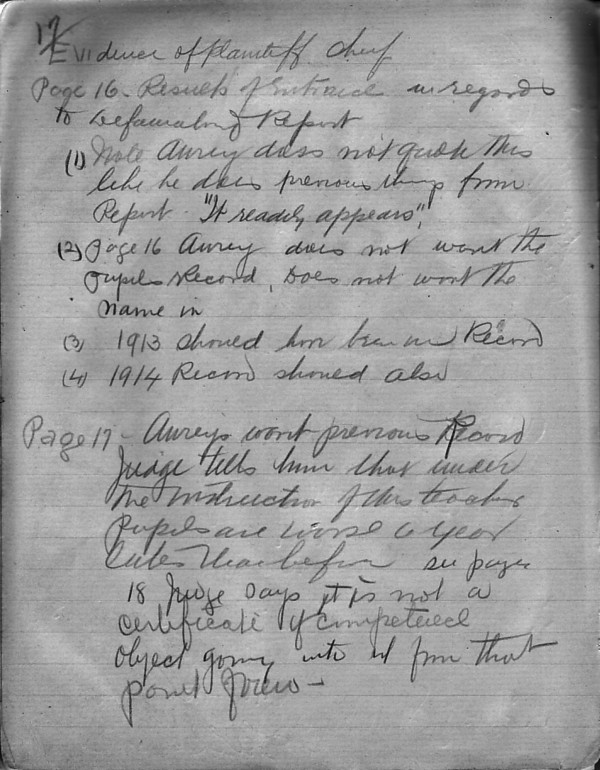 17
Evidence of Plaintiff chief
Page 16 - Results of Entrance in regards
to Defamatory Report
(1) Note Aurey does not quote this
like he does previous things from
Report - "It readily appears",
(2) Page 16 Aurey does not want the
pupils Record, Does not want the
name in
(3) 1913 should have been in Record
(4) 1914 Record should also
Page 17 - Aureys wont previous Record
Judge tells him that under
the Instruction of this teacher
Pupils are worse a year
later than before see page
18 Judge says it is not a
certificate of competence
object going into it from that
point of view -